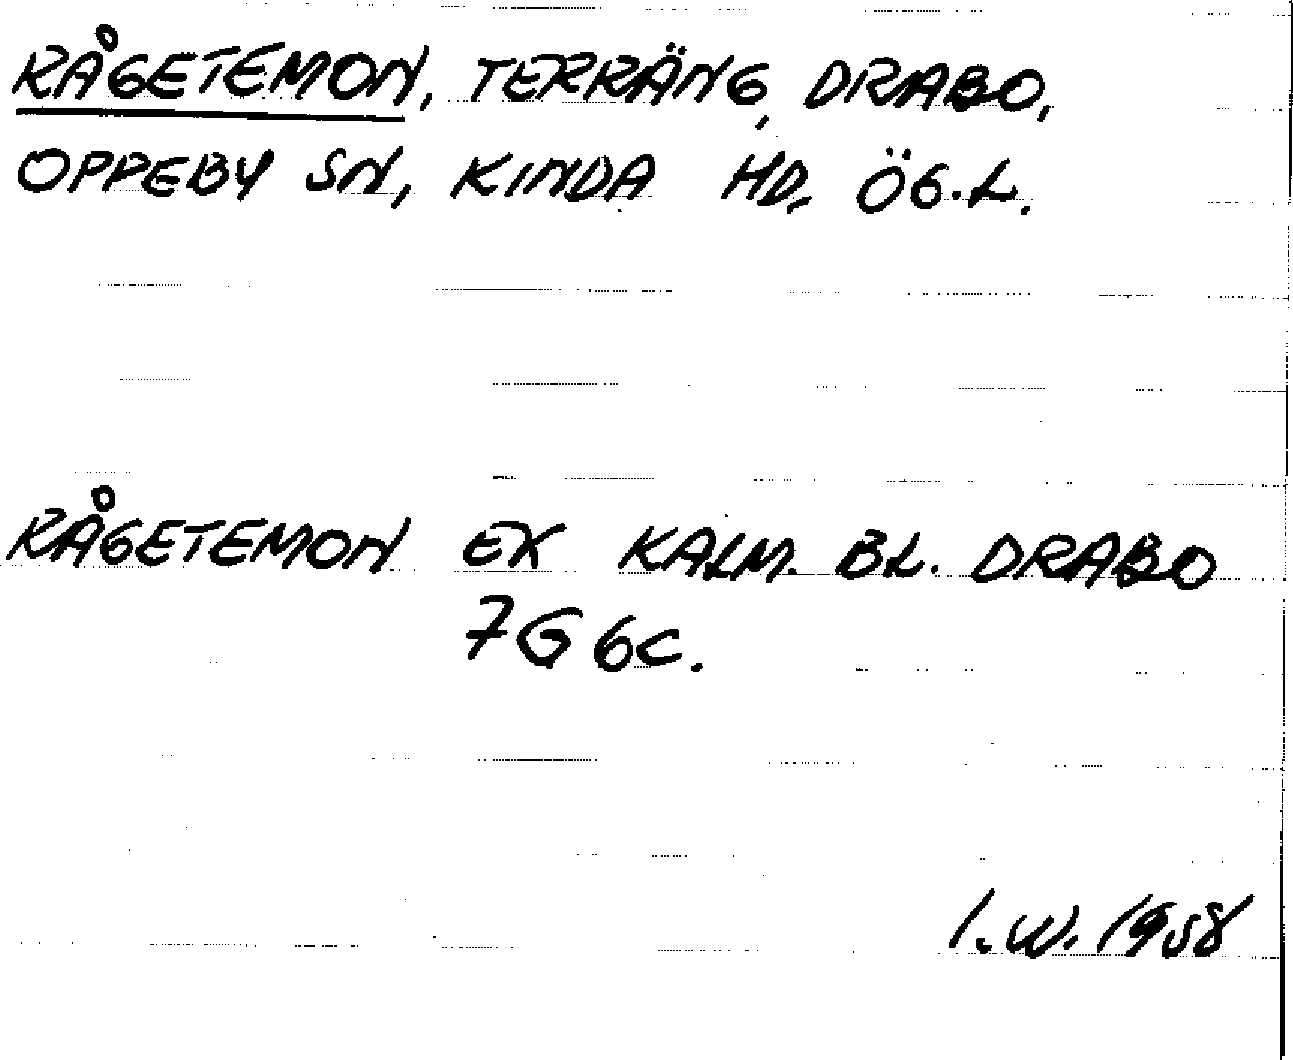 RÅGETEMON, TERRÄNG, DRABO,
OPPEBY SN, KINDA HD, ÖG.L.
RÅGETEMON EX KALM. BL. DRABO
7G6c.
I.W. 1958